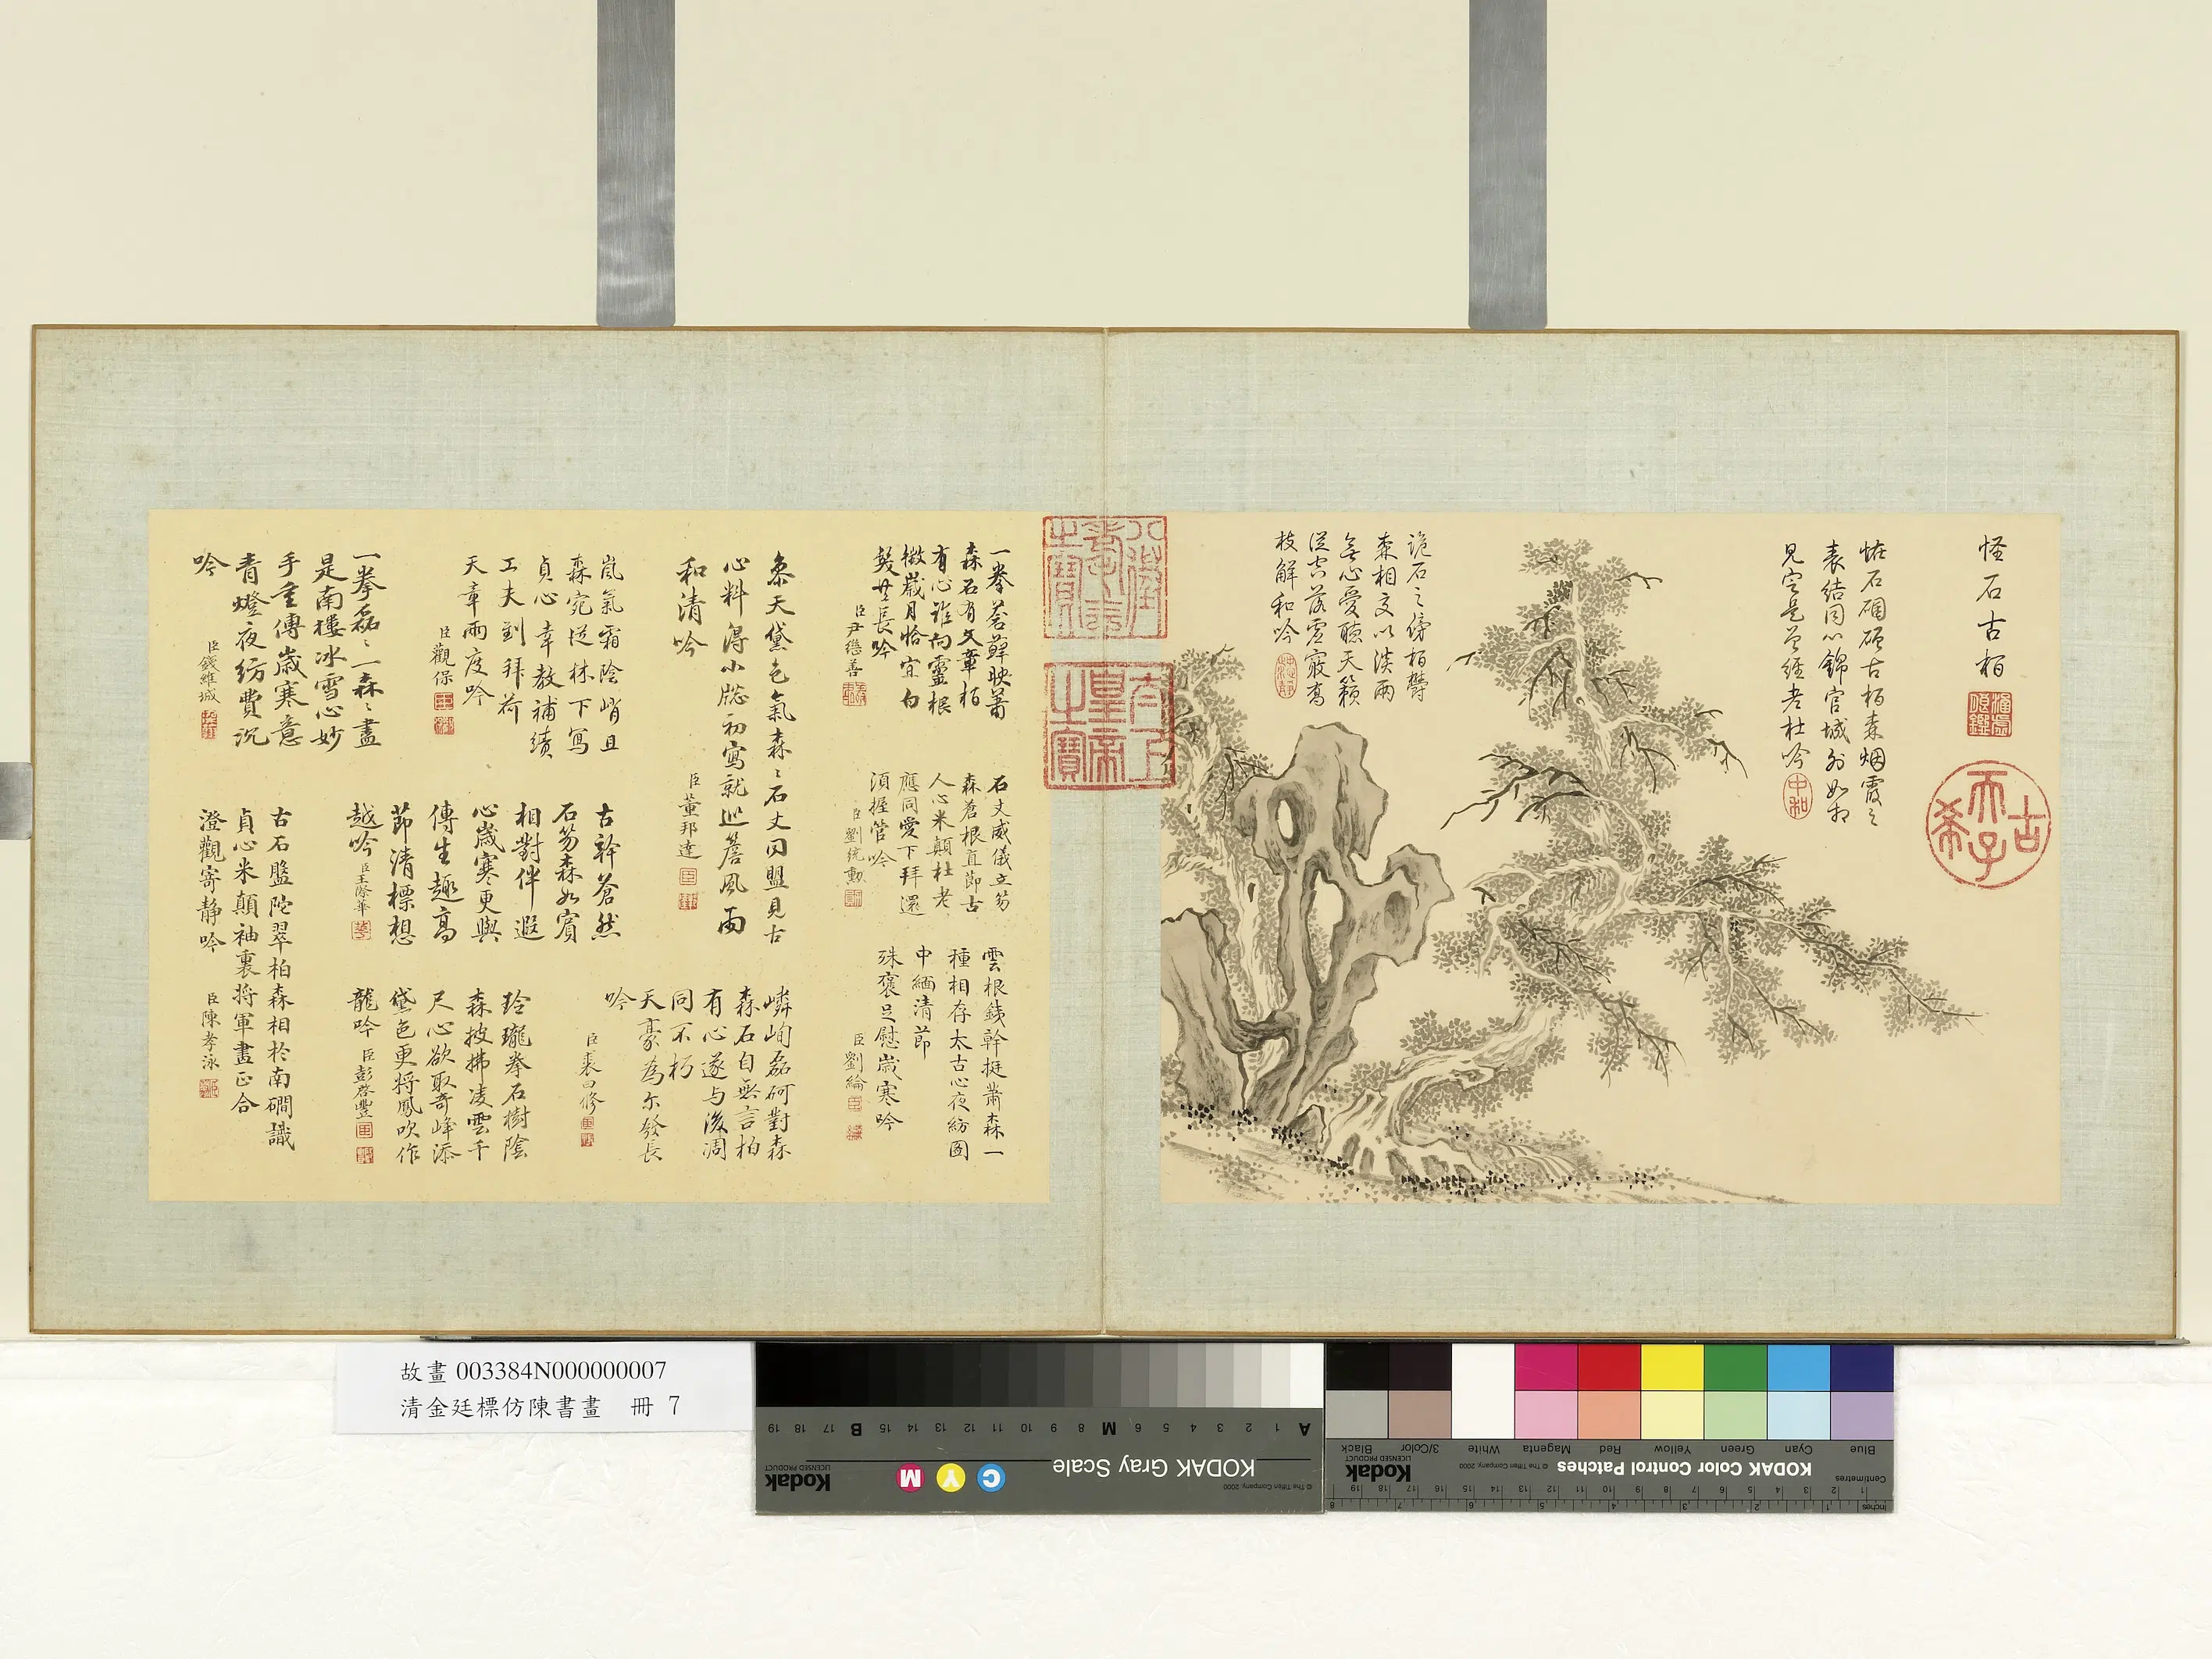 怪石古柏
古希天子
怪石硱硱古柏森烟霞之
表結同心錦官城外如相
見定是曾經老杜吟
中和
詭石之傍栢欝
森相交以淡兩
無心愛聽天籟
從空落虛寂高
枝解和吟
八徵耄念之寶
太上皇帝之寶
一拳苔蘚映蕭
森石有文章栢
有心誰向靈根
徵歲月恰宜白
髮共長吟
臣尹繼善
石丈威儀立笏
森蒼根直節古
人心米顛杜老
應同愛下拜還
須握管吟
臣劉統勳
雲根銕幹挺蕭森一
種相存太古心夜紡圖
中緬清節
殊褒足慰歲寒吟
臣劉綸
參天黛色氣森〻石丈同盟見古
心料得小牎初寫就巡簷風雨
和清吟
臣董邦達
嶙峋磊砢對森
森石自無言柏
有心遂与後凋
同不朽
天豪為尔發長
吟
臣裘曰修
嵐氣霜陰峭且
森宛從林下寫
貞心幸教補績
工夫到拜荷
天章兩度吟
臣觀保
古幹蒼然
石笏森如賓
相對伴遐
心歲寒更與
傳生趣高
節清標想
越吟
臣王際華
玲瓏拳石樹陰
森披拂凌雲千
尺心欲取奇峰添
黛色更將鳳吹作
龍吟
臣彭啓豐
一拳磊〻一森〻盡
是南樓冰雪心妙
手重傳歲寒意
青燈夜紡費沉
吟
臣錢維城
古石盤陀翠柏森相於南磵識
貞心米顛袖裏將軍畫正合
澄觀寄靜吟
臣陳孝泳
故畫 003384N000000007
清金廷標仿陳書畫 冊 7
KODAK Gray Scale
Kodak
LICENSED PRODUCT
© The Tiffen Company, 2000
C Y M
A 1 2 3 4 5 6 M 8 9 10 11 12 13 14 15 B 17 18 19
KODAK Color Control Patches
© The Tiffen Company, 2000
Kodak
LICENSED PRODUCT
Blue Cyan Green Yellow Red Magenta White 3/Color Black
Centimetres
Inches